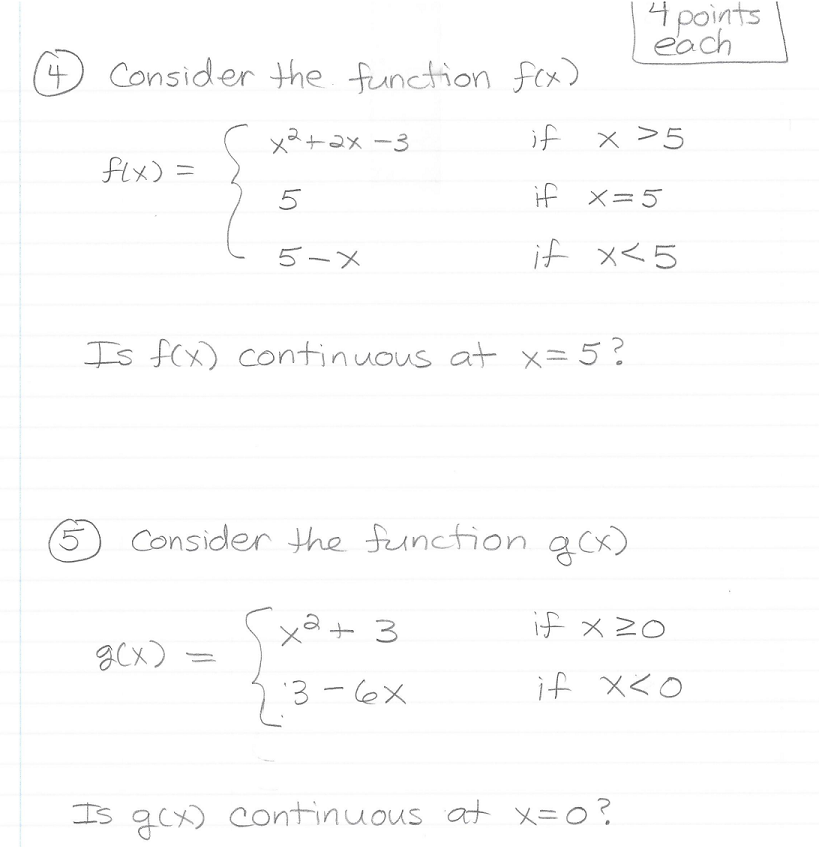 4 points
each
④ Consider the function f(x)
f(x) = { x²+2x-3 if x >5
5 if x=5
5-x if x<5
Is f(x) continuous at x=5?
⑤ Consider the function g(x)
g(x) = { x²+3 if x≥0
3-6x if x<0
Is g(x) continuous at x=0?